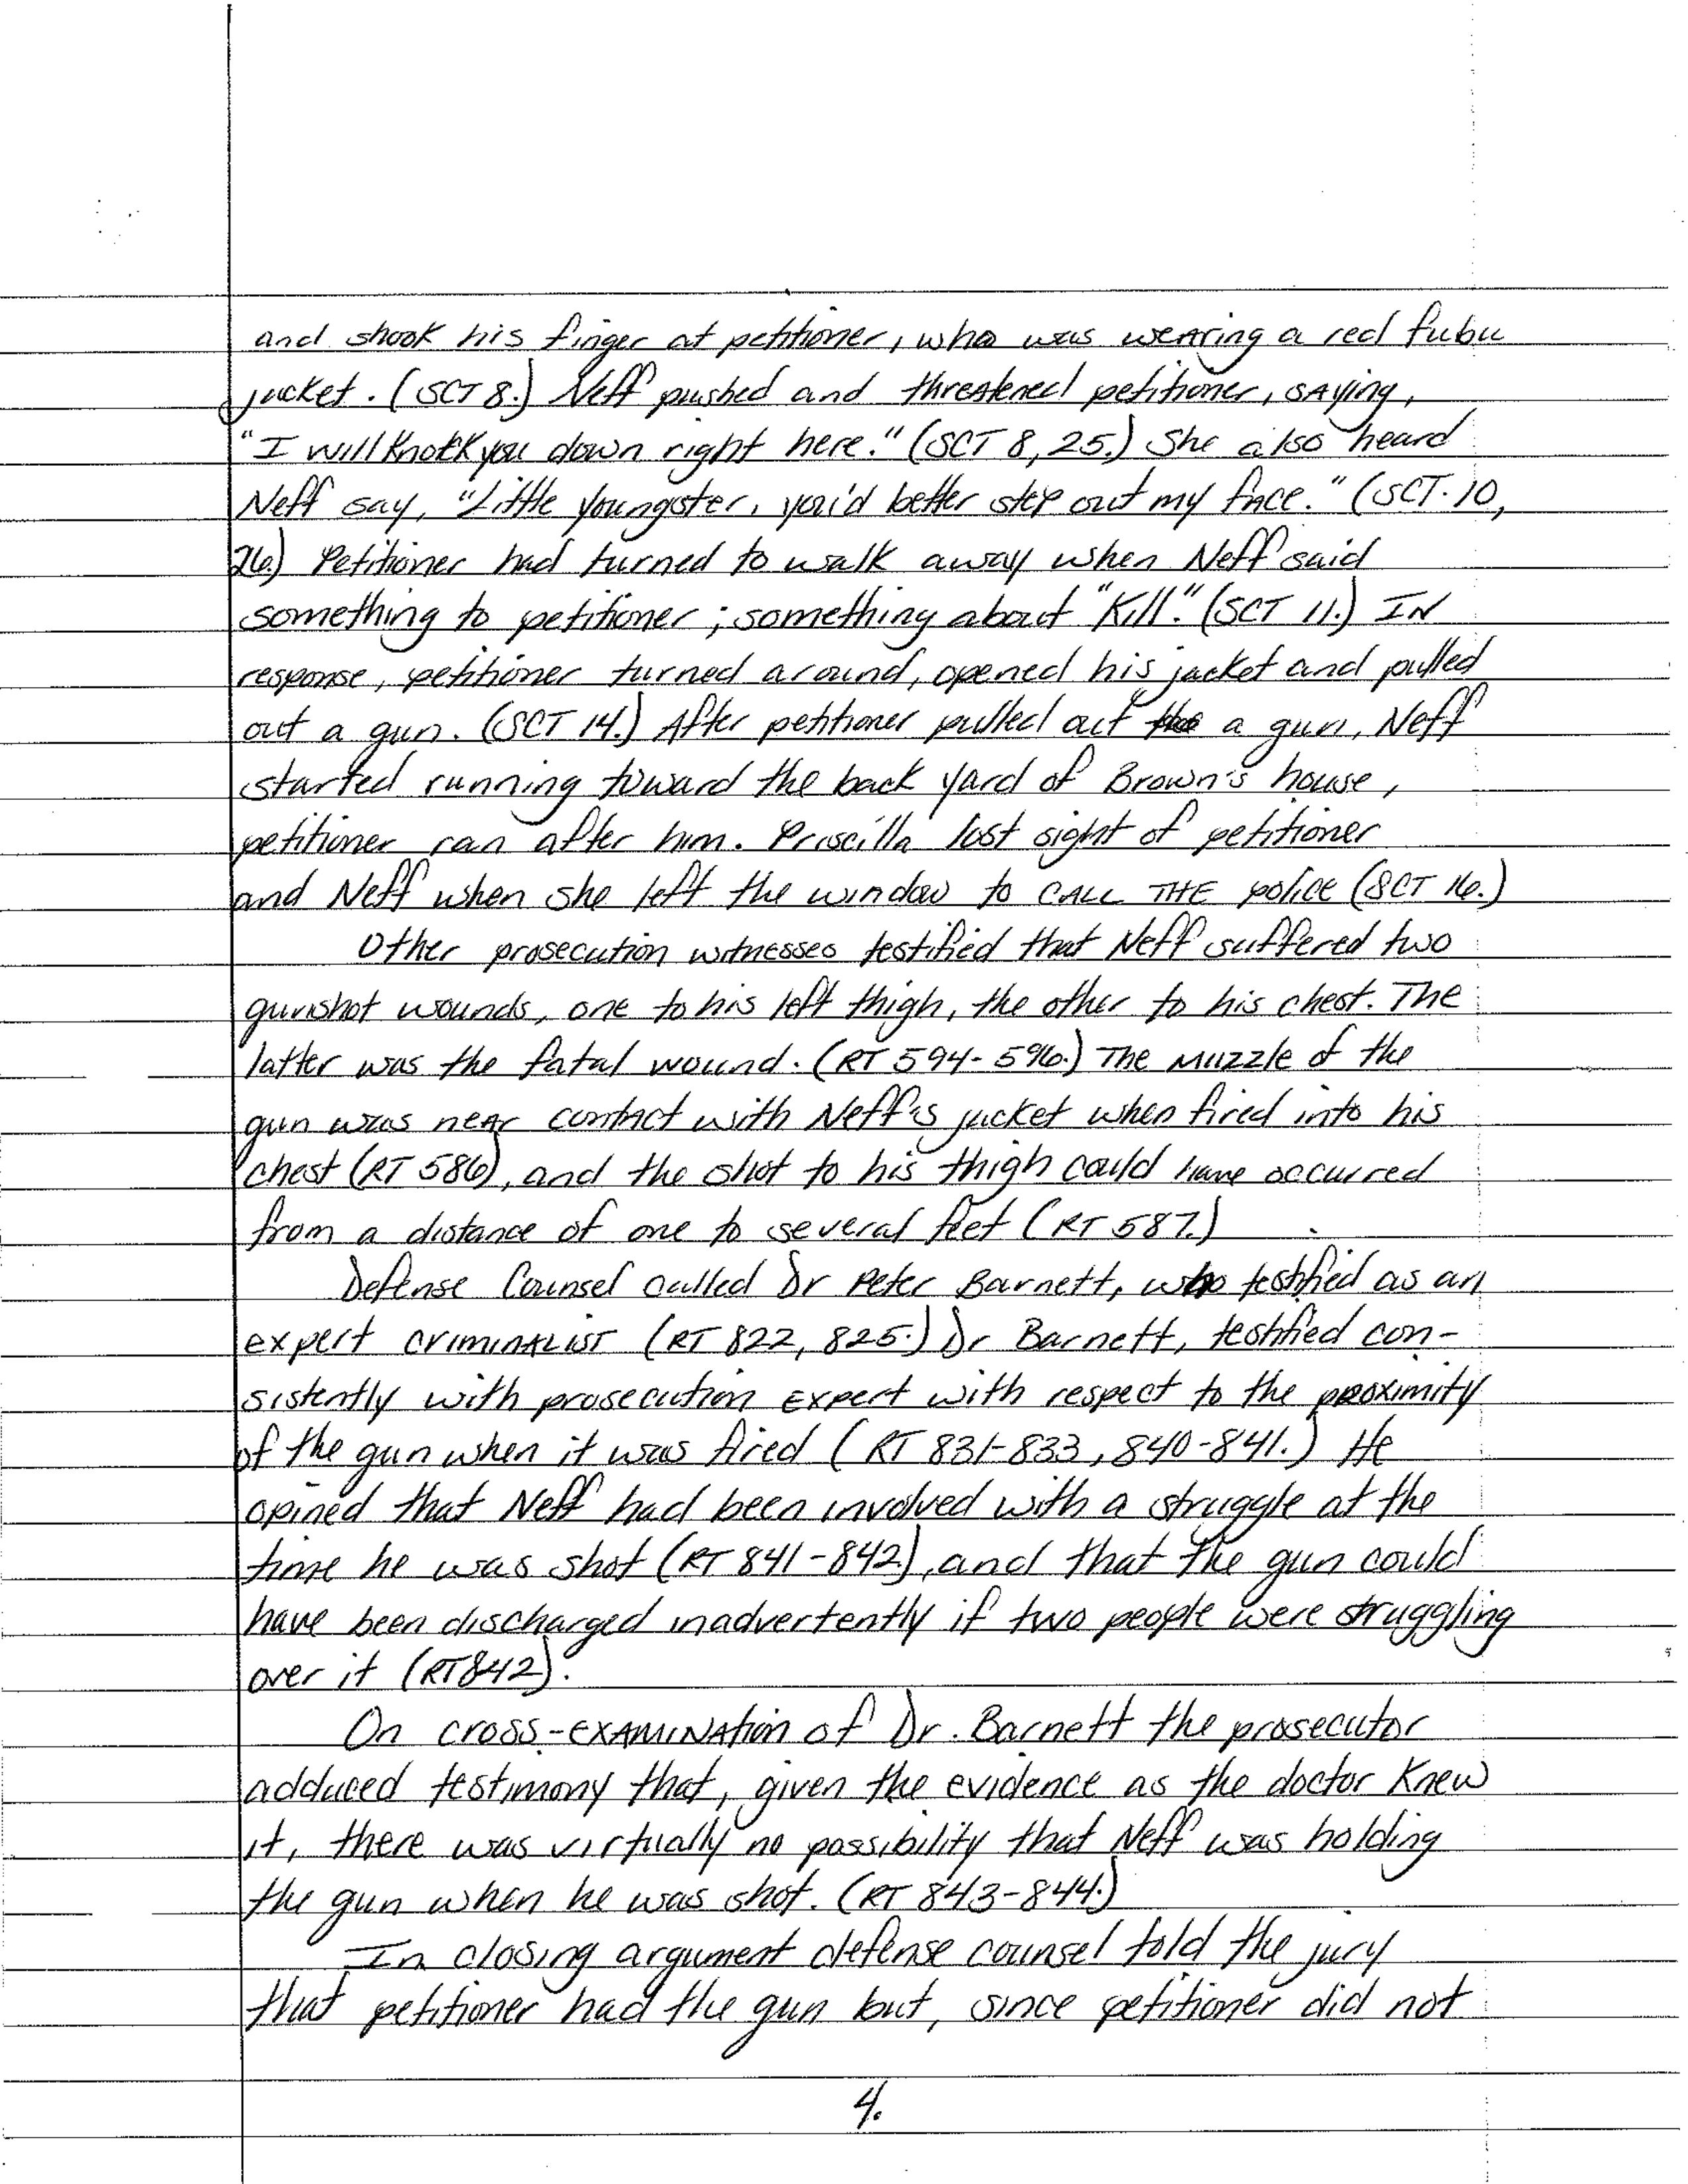 and shook his finger at petitioner, who was wearing a red fubu
jacket. (SCT 8.) Neff pushed and threatened petitioner, saying,
"I will knock you down right here." (SCT 8, 25.) She also heard
Neff say, "Little youngster, you'd better step out my face." (SCT. 10,
26.) Petitioner had turned to walk away when Neff said
something to petitioner; something about "Kill." (SCT 11.) IN
response, petitioner turned around, opened his jacket and pulled
out a gun. (SCT 14.) After petitioner pulled out a gun, Neff
started running toward the back yard of Brown's house,
petitioner ran after him. Priscilla lost sight of petitioner
and Neff when she left the window to CALL THE police (SCT 16.)
Other prosecution witnesses testified that Neff suffered two
gunshot wounds, one to his left thigh, the other to his chest. The
latter was the fatal wound. (RT 594-596.) The muzzle of the
gun was near contact with Neff's jacket when fired into his
chest (RT 586), and the shot to his thigh could have occurred
from a distance of one to several feet (RT 587.)
Defense Counsel called Dr Peter Barnett, who testified as an
expert criminalist (RT 822, 825.) Dr Barnett, testified con-
sistently with prosecution expert with respect to the proximity
of the gun when it was fired (RT 831-833, 840-841.) He
opined that Neff had been involved with a struggle at the
time he was shot (RT 841-842), and that the gun could
have been discharged inadvertently if two people were struggling
over it (RT842).
On cross-examination of Dr. Barnett the prosecutor
adduced testimony that, given the evidence as the doctor knew
it, there was virtually no possibility that Neff was holding
the gun when he was shot. (RT 843-844.)
In closing argument defense counsel told the jury
that petitioner had the gun but, since petitioner did not
4.